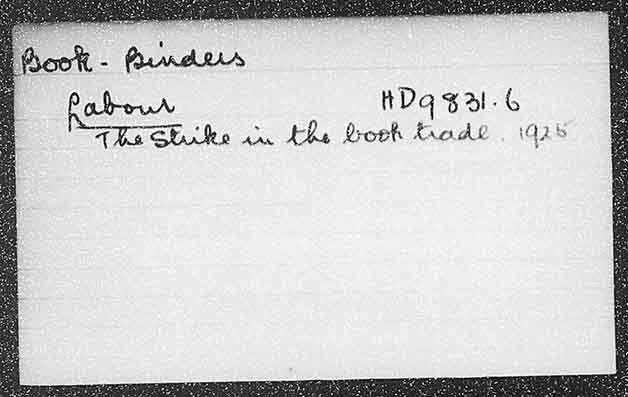 Book - Binders
Labour HD9831.6
The Strike in the book trade. 1925